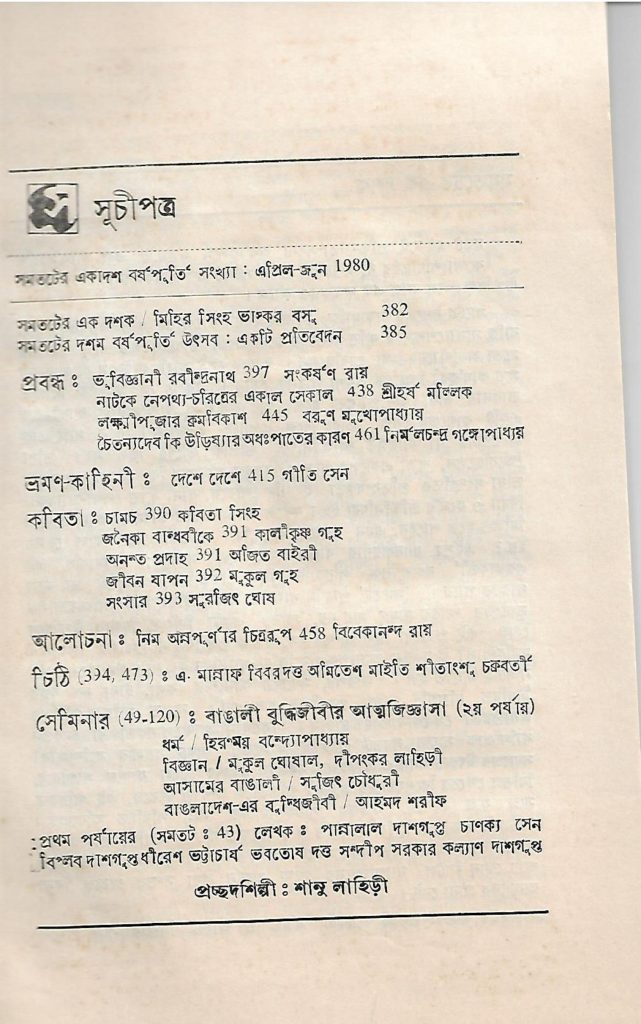 সূচীপত্র
সমতটের একাদশ বর্ষপূর্তি সংখ্যা : এপ্রিল-জুন 1980
সমতটের এক দশক / মিহির সিংহ ভাস্কর বসু 382
সমতটের দশম বর্ষপূর্তি উৎসব : একটি প্রতিবেদন 385
প্রবন্ধ : ভূবিজ্ঞানী রবীন্দ্রনাথ 397 সংকর্ষণ রায়
নাটকে নেপথ্য-চরিত্রের একাল সেকাল 438 শ্রীহর্ষ মল্লিক
লক্ষ্মীপূজার ক্রমবিকাশ 445 বরুণ মুখোপাধ্যায়
চৈতন্যদেব কি উড়িষ্যার অধঃপাতের কারণ 461 নির্মলচন্দ্র গঙ্গোপাধ্যায়
ভ্রমণ-কাহিনী : দেশে দেশে 415 গীতি সেন
কবিতা : চামচ 390 কবিতা সিংহ
জনৈকা বান্ধবীকে 391 কালীকৃষ্ণ গুহ
অনন্ত প্রদাহ 391 অজিত বাইরী
জীবন যাপন 392 মুকুল গুহ
সংসার 393 সুরজিৎ ঘোষ
আলোচনা : নিম অন্নপূর্ণার চিত্ররূপ 458 বিবেকানন্দ রায়
চিঠি (394, 473) : এ. মান্নাফ বিবরদত্ত অমিতেশ মাইতি শীতাংশু চক্রবর্তী
সেমিনার (49-120) : বাঙালী বুদ্ধিজীবীর আত্মজিজ্ঞাসা (২য় পর্যায়)
ধর্ম / হিরণ্ময় বন্দ্যোপাধ্যায়
বিজ্ঞান / মুকুল ঘোষাল, দীপংকর লাহিড়ী
আসামের বাঙালী / সুজিৎ চৌধুরী
বাঙলাদেশ-এর বুদ্ধিজীবী / আহমদ শরীফ
প্রথম পর্যায়ের (সমতট : 43) লেখক : পান্নালাল দাশগুপ্ত চাণক্য সেন
বিপ্লব দাশগুপ্ত ধীরেশ ভট্টাচার্য ভবতোষ দত্ত সন্দীপ সরকার কল্যাণ দাশগুপ্ত
প্রচ্ছদশিল্পী : শানু লাহিড়ী